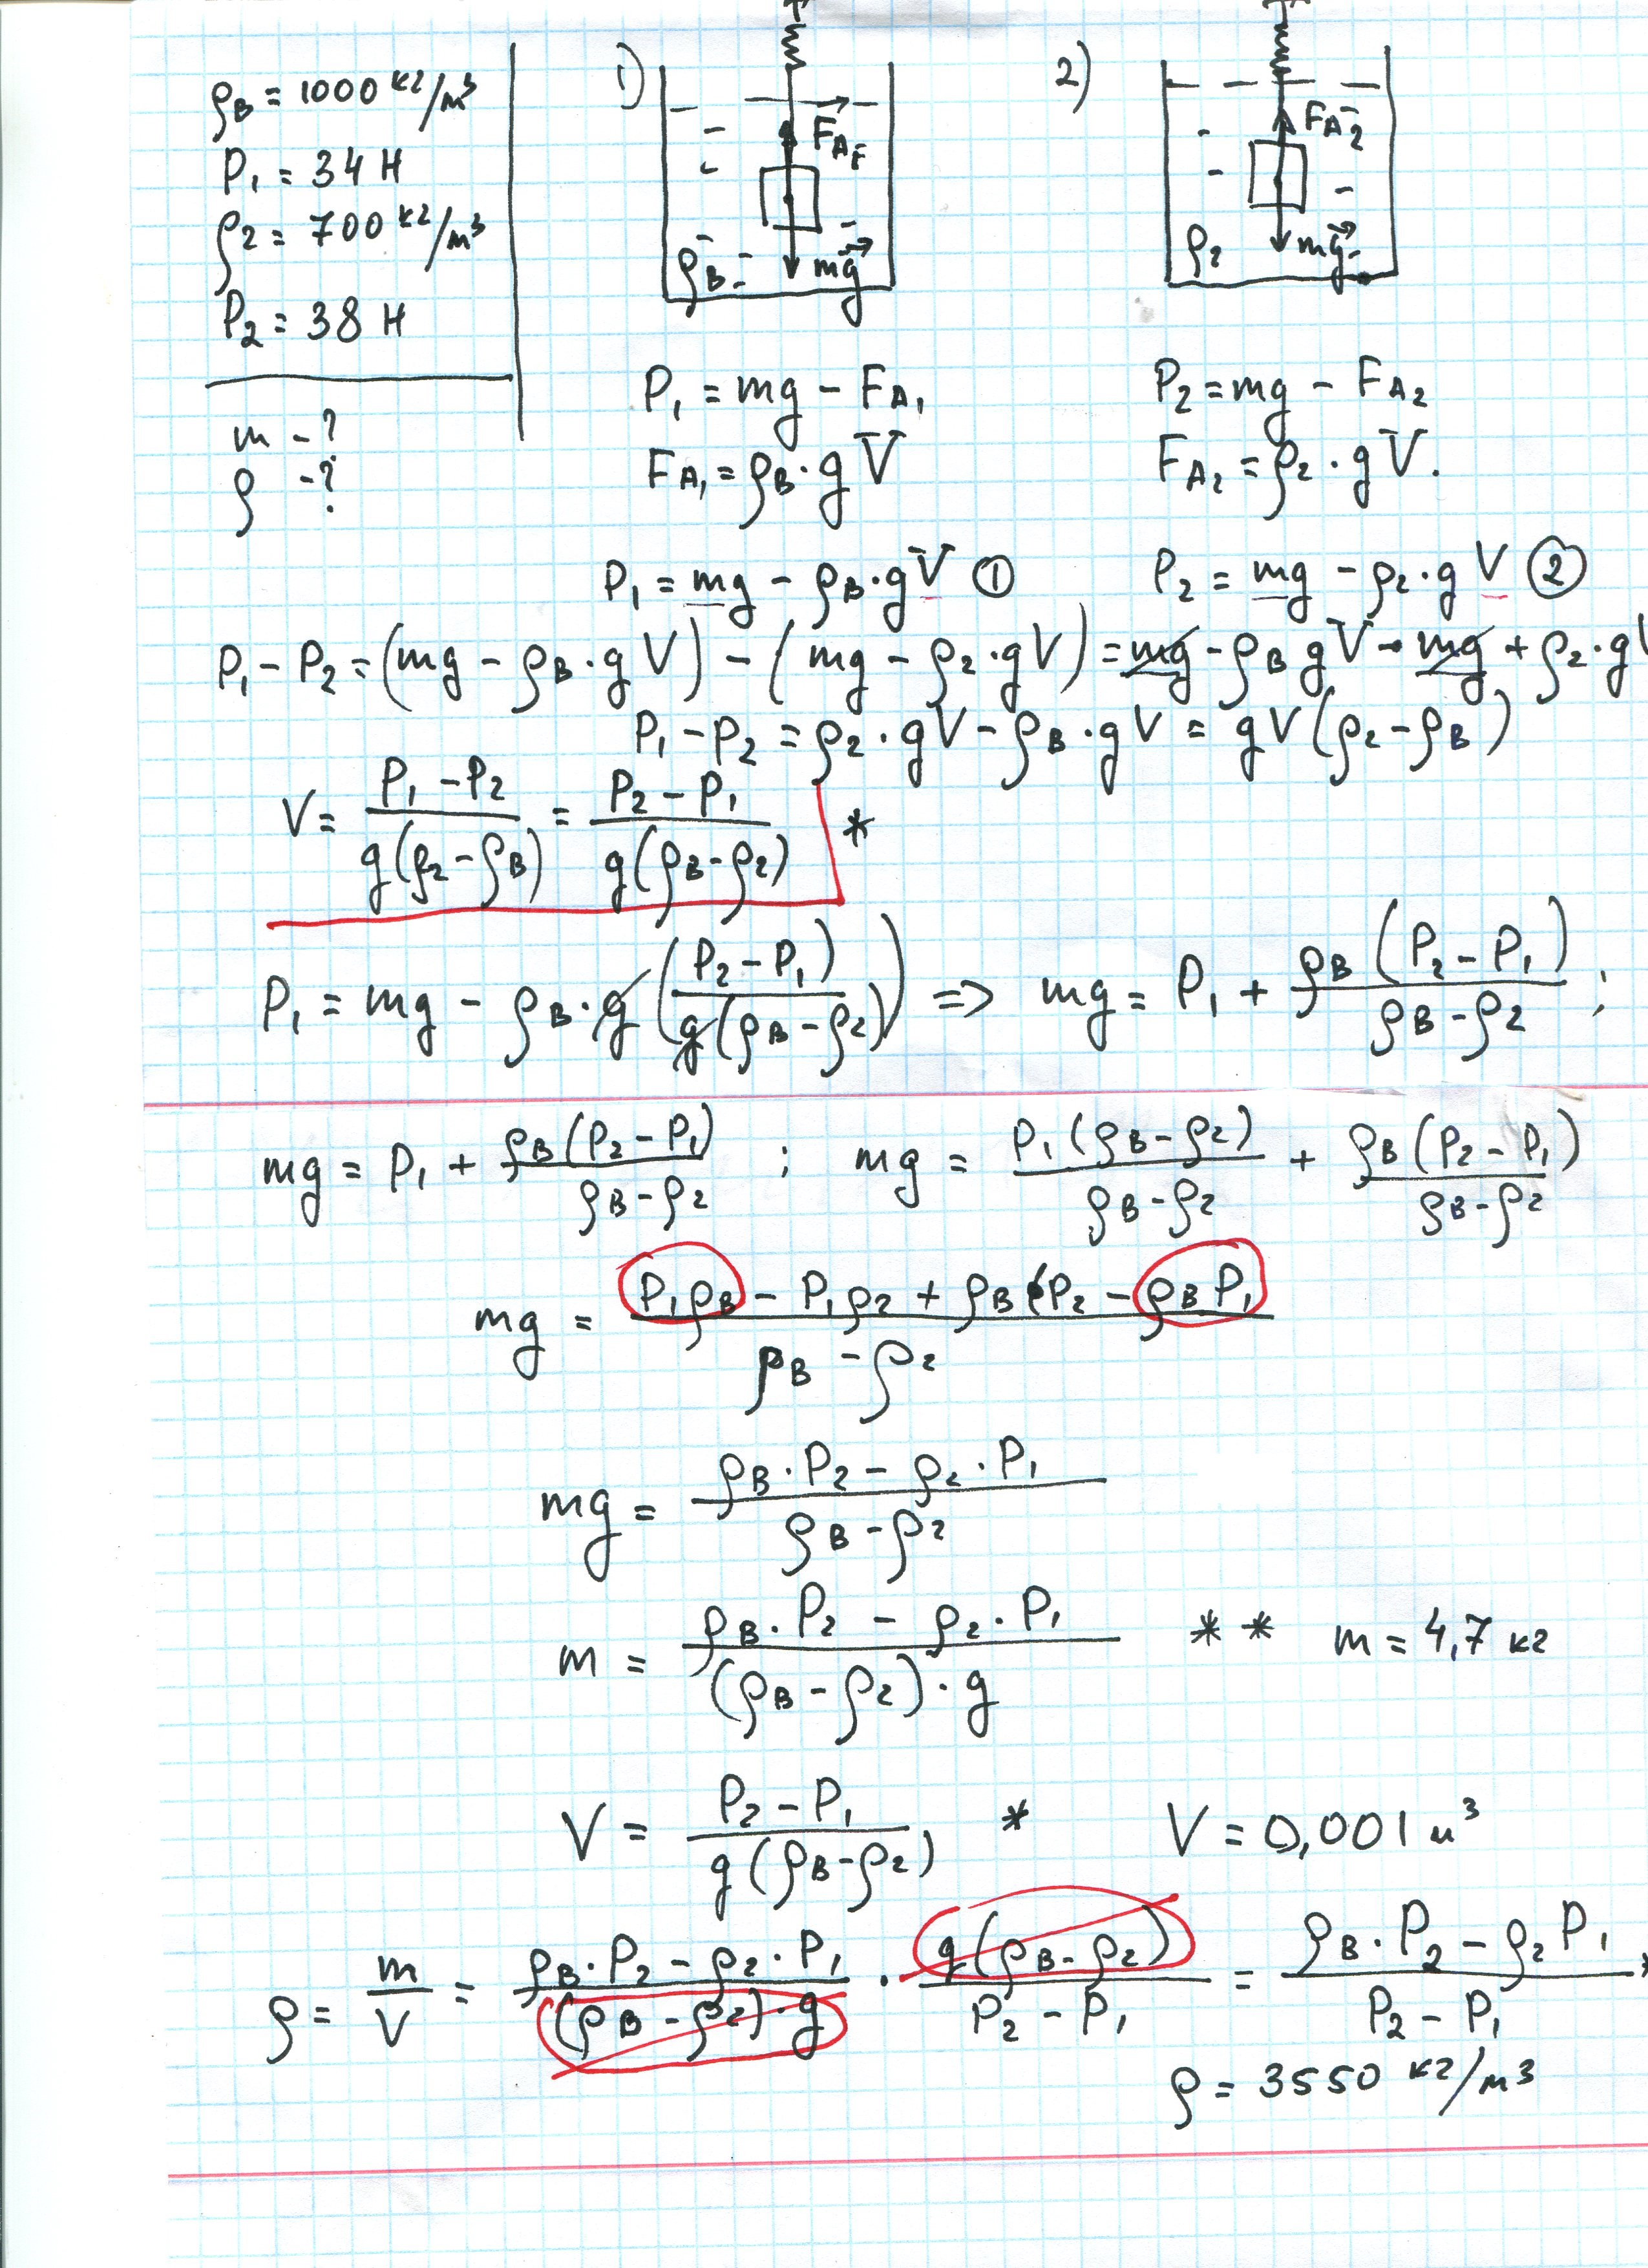 ρв = 1000 кг/м³
P₁ = 34 Н
ρ₂ = 700 кг/м³
P₂ = 38 Н
m - ?
ρ - ?
1)
F_A₁
ρв
mg
2)
F_A₂
ρ₂
mg
P₁ = mg - F_A₁
F_A₁ = ρв · g V
P₂ = mg - F_A₂
F_A₂ = ρ₂ · g V.
P₁ = mg - ρв · g V ①
P₂ = mg - ρ₂ · g V ②
P₁ - P₂ = (mg - ρв · g V) - (mg - ρ₂ · gV) = mg - ρв gV - mg + ρ₂ · gV
P₁ - P₂ = ρ₂ · gV - ρв · gV = gV(ρ₂ - ρв)
V = (P₁ - P₂)/(g(ρ₂ - ρв)) = (P₂ - P₁)/(g(ρв - ρ₂)) *
P₁ = mg - ρв · g ((P₂ - P₁)/(g(ρв - ρ₂))) => mg = P₁ + ρв(P₂ - P₁)/(ρв - ρ₂) ;
mg = P₁ + ρв(P₂ - P₁)/(ρв - ρ₂) ; mg = P₁(ρв - ρ₂)/(ρв - ρ₂) + ρв(P₂ - P₁)/(ρв - ρ₂)
mg = (P₁ρв - P₁ρ₂ + ρв P₂ - ρв P₁)/(ρв - ρ₂)
mg = (ρв · P₂ - ρ₂ · P₁)/(ρв - ρ₂)
m = (ρв · P₂ - ρ₂ · P₁)/((ρв - ρ₂) · g) ** m = 4,7 кг
V = (P₂ - P₁)/(g(ρв - ρ₂)) * V = 0,001 м³
ρ = m/V = (ρв · P₂ - ρ₂ · P₁)/((ρв - ρ₂) · g) · g(ρв - ρ₂)/(P₂ - P₁) = (ρв · P₂ - ρ₂ P₁)/(P₂ - P₁) *
ρ = 3550 кг/м³